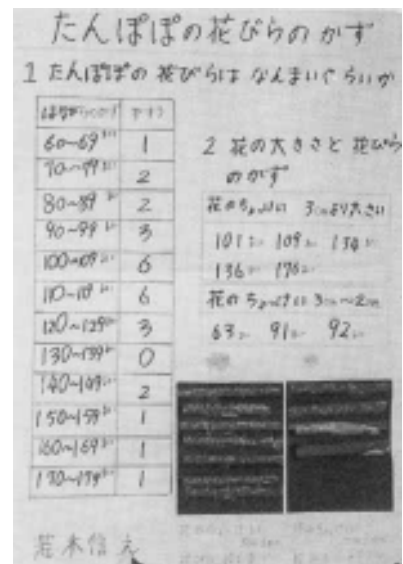 たんぽぽの花びらのかず
1 たんぽぽの花びらは なんまいぐらいか
60~69まい 1
70~79まい 2
80~89まい 2
90~99まい 3
100~109まい 6
110~119まい 6
120~129まい 3
130~139まい 0
140~149まい 2
150~159まい 1
160~169まい 1
170~179まい 1
2 花の大きさと 花びら
のかず
花のちょっけい 3cmより大きい
101まい 109まい 134まい
136まい 176まい
花のちょっけい 3cm~2cm
63まい 91まい 92まい